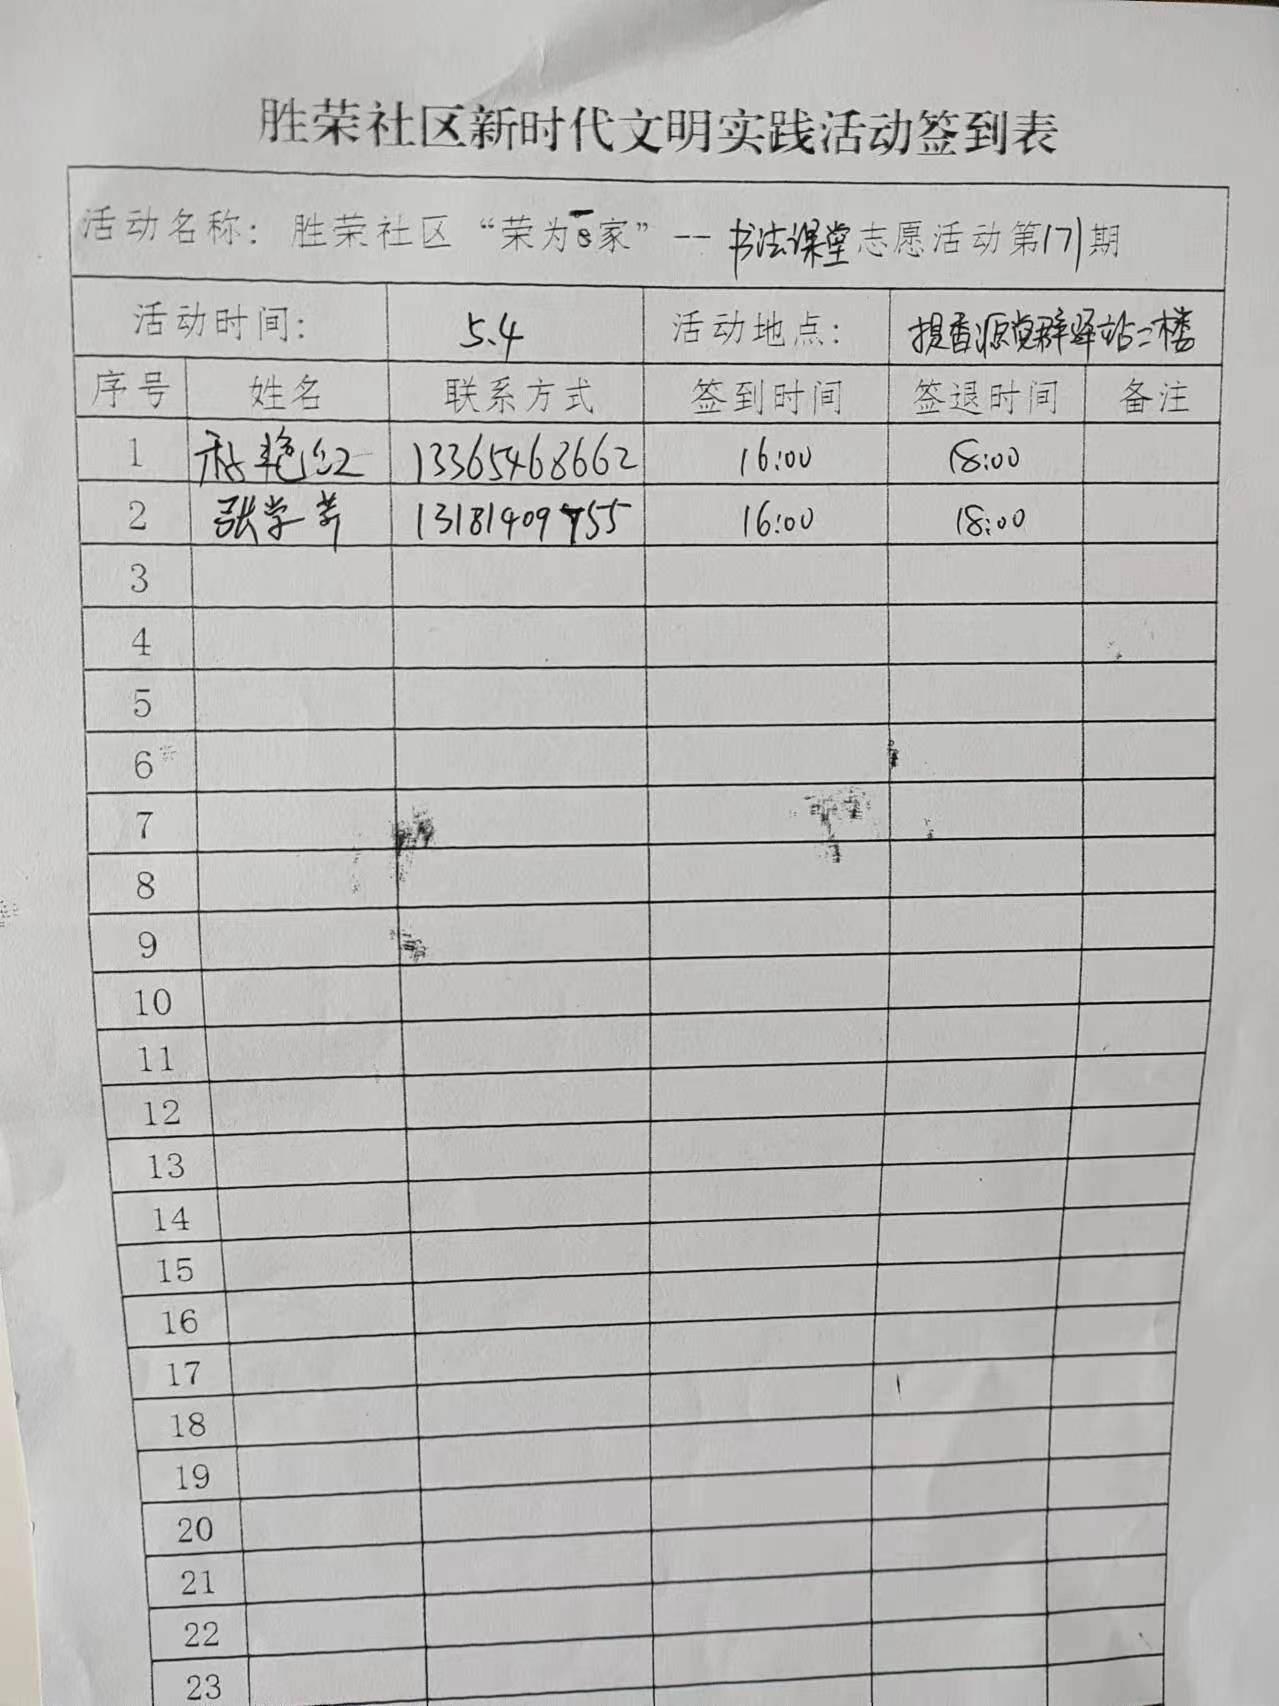 胜荣社区新时代文明实践活动签到表
活动名称：胜荣社区“荣为e家”--书法课堂志愿活动第171期
活动时间： 5.4 活动地点： 提香源党群驿站二楼
序号 姓名 联系方式 签到时间 签退时间 备注
1 艳红 13365468662 16:00 18:00
2 张学 13181409755 16:00 18:00
3
4
5
6
7
8
9
10
11
12
13
14
15
16
17
18
19
20
21
22
23